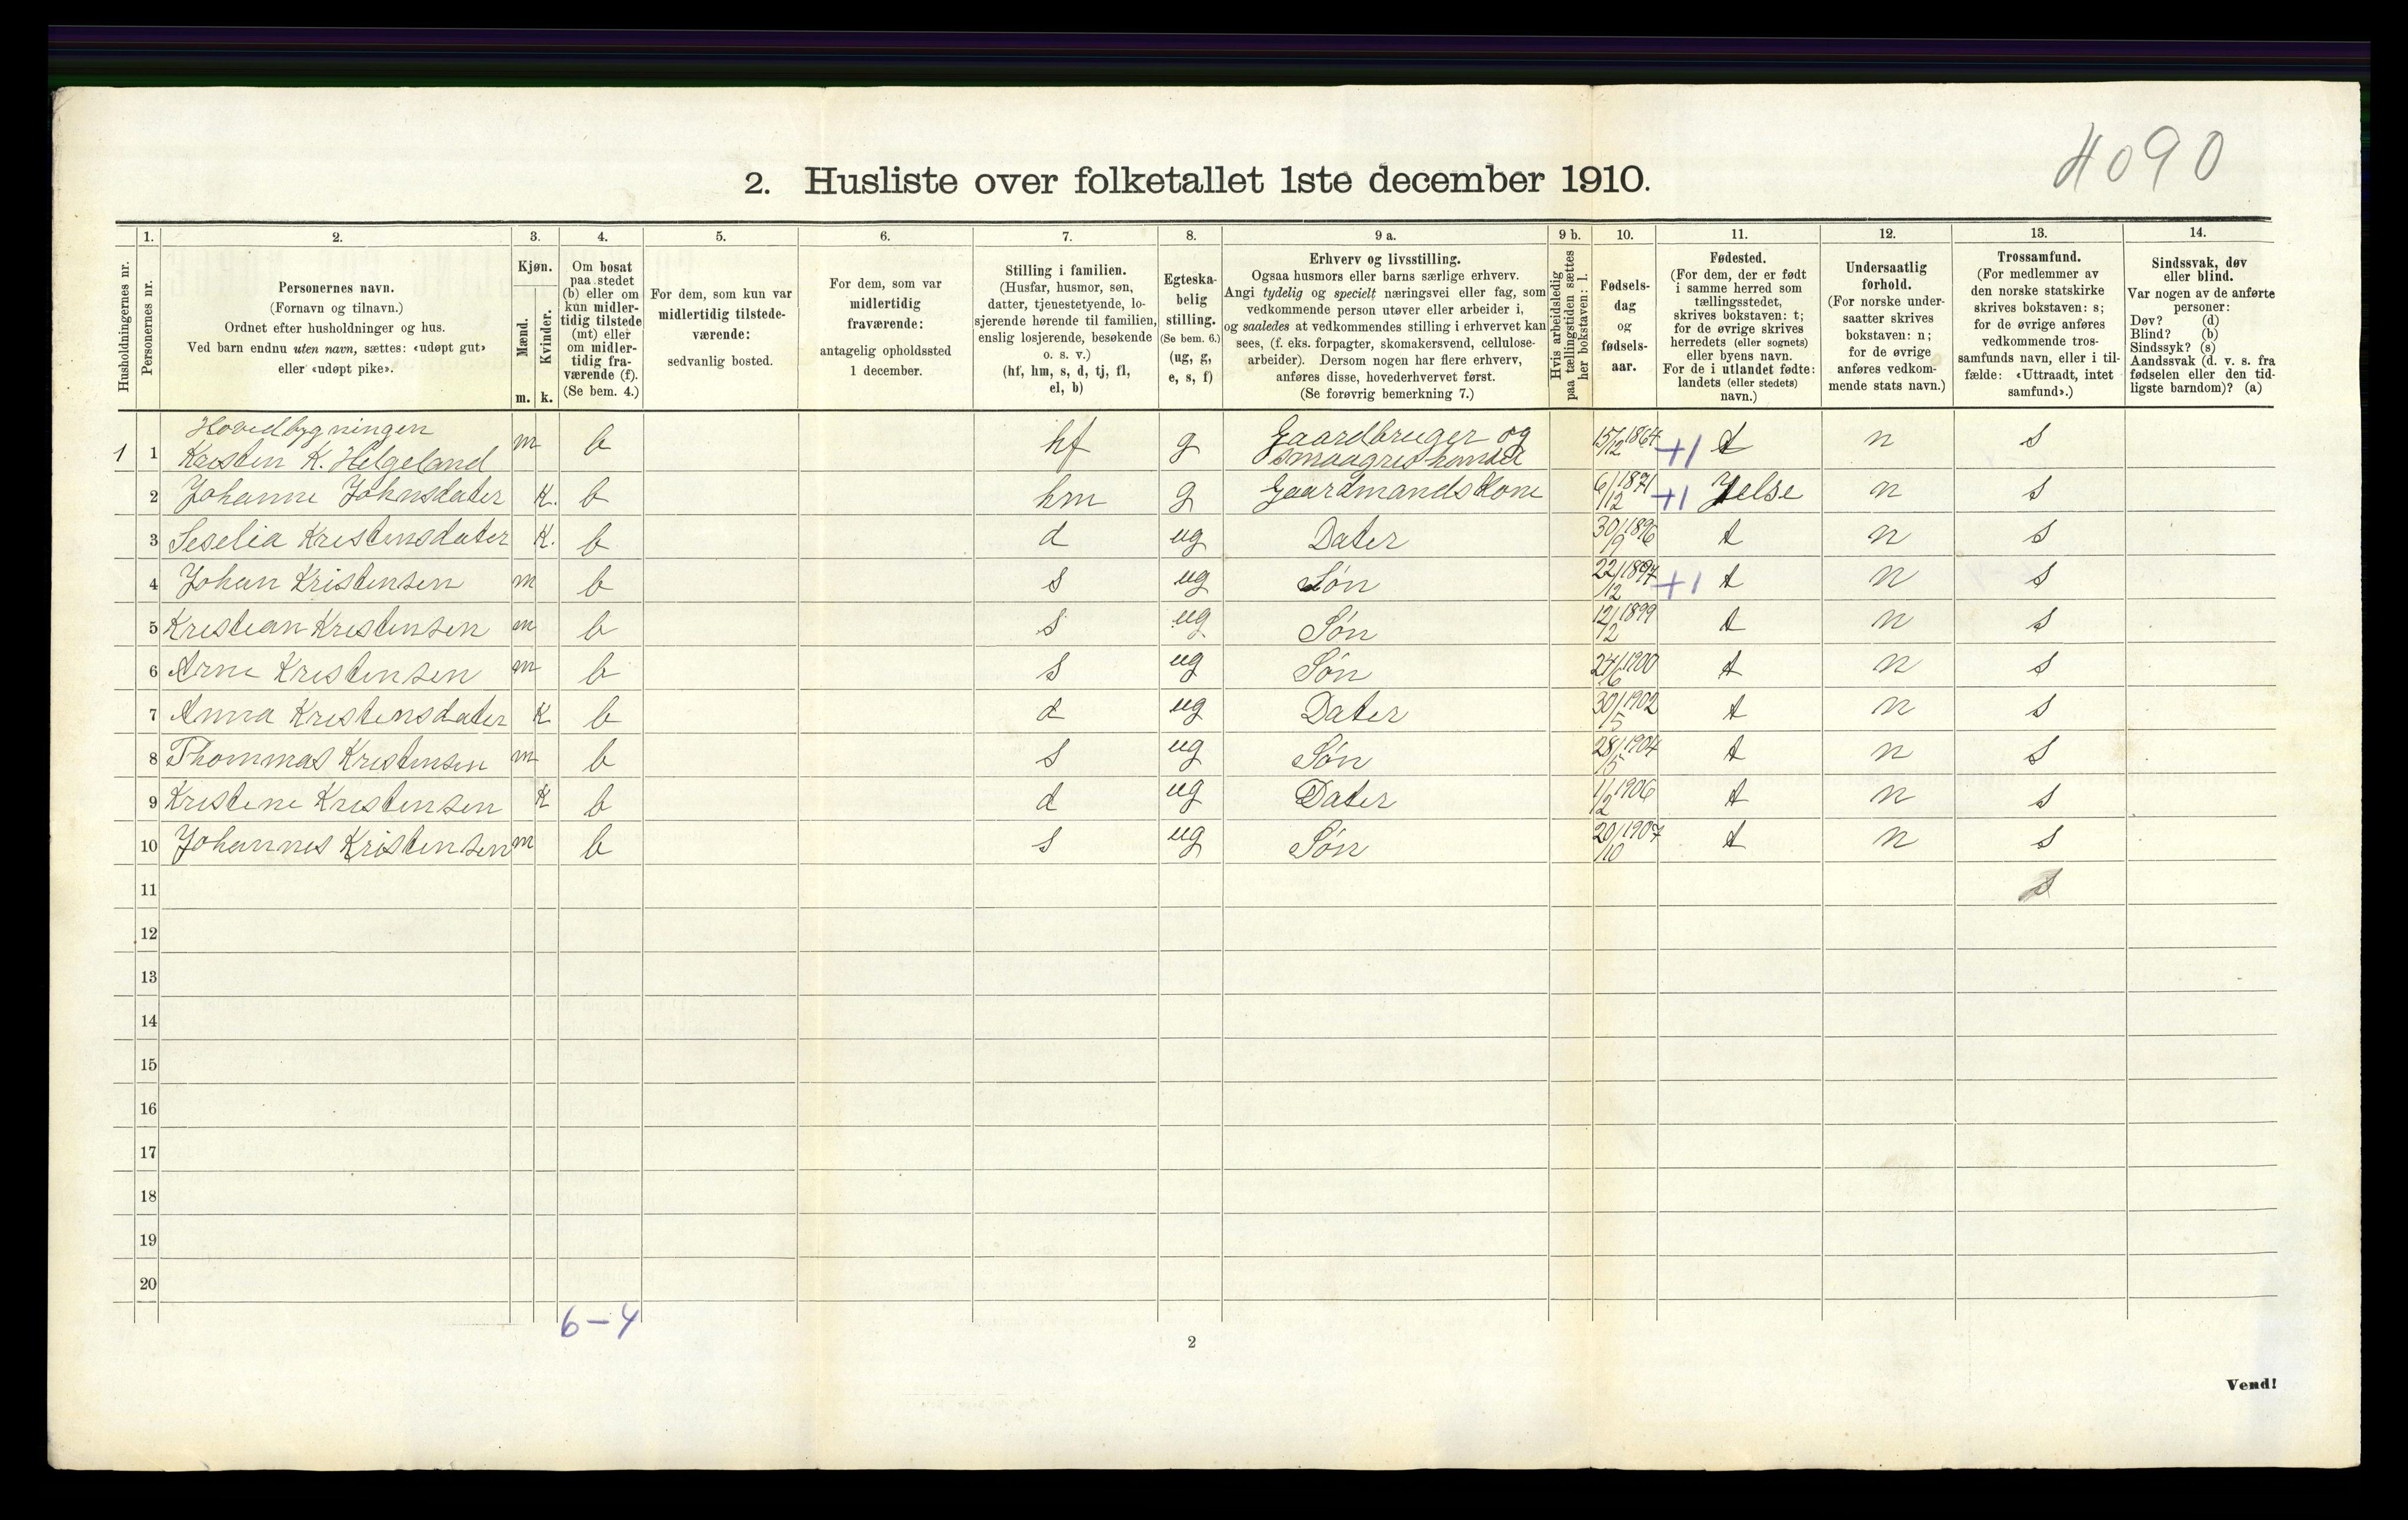 4090
2. Husliste over folketallet 1ste december 1910.
Husholdningernes nr.
1.
Personernes nr.
2.
Personernes navn.
(Fornavn og tilnavn.)
Ordnet efter husholdninger og hus.
Ved barn endnu uten navn, sættes: «udøpt gut»
eller «udøpt pike».
3.
Kjøn.
Mænd.
Kvinder.
m. k.
4.
Om bosat
paa stedet
(b) eller om
kun midler-
tidig tilstede
(mt) eller
om midler-
tidig fra-
værende (f).
(Se bem. 4.)
5.
For dem, som kun var
midlertidig tilstede-
værende:
sedvanlig bosted.
6.
For dem, som var
midlertidig
fraværende:
antagelig opholdssted
1 december.
7.
Stilling i familien.
(Husfar, husmor, søn,
datter, tjenestetyende, lo-
sjerende hørende til familien,
enslig losjerende, besøkende
o. s. v.)
(hf, hm, s, d, tj, fl,
el, b)
8.
Egteska-
belig
stilling.
(Se bem. 6.)
(ug, g,
e, s, f)
9 a.
Erhverv og livsstilling.
Ogsaa husmors eller barns særlige erhverv.
Angi tydelig og specielt næringsvei eller fag, som
vedkommende person utøver eller arbeider i,
og saaledes at vedkommendes stilling i erhvervet kan
sees, (f. eks. forpagter, skomakersvend, cellulose-
arbeider). Dersom nogen har flere erhverv,
anføres disse, hovederhvervet først.
(Se forøvrig bemerkning 7.)
9 b.
Hvis arbeidsledig
paa tællingstiden sættes
her bokstaven: l.
10.
Fødsels-
dag
og
fødsels-
aar.
11.
Fødested.
(For dem, der er født
i samme herred som
tællingsstedet,
skrives bokstaven: t;
for de øvrige skrives
herredets (eller sognets)
eller byens navn.
For de i utlandet fødte:
landets (eller stedets)
navn.)
12.
Undersaatlig
forhold.
(For norske under-
saatter skrives
bokstaven: n;
for de øvrige
anføres vedkom-
mende stats navn.)
13.
Trossamfund.
(For medlemmer av
den norske statskirke
skrives bokstaven: s;
for de øvrige anføres
vedkommende tros-
samfunds navn, eller i til-
fælde: «Uttraadt, intet
samfund».)
14.
Sindssvak, døv
eller blind.
Var nogen av de anførte
personer:
Døv? (d)
Blind? (b)
Sindssyk? (s)
Aandssvak (d. v. s. fra
fødselen eller den tid-
ligste barndom)? (a)
Hovedbygningen
1 1 Kristen K. Helgeland m b hf g Gaardbruger og smaagris handel 15/12 1864 +1 t n s
2 Johanne Johnsdater K. b hm g Gaardmandskone 6/12 1871 +1 Jelse n s
3 Seselia Kristensdater K. b d ug Dater 30/9 1896 t n s
4 Johan Kristensen m b s ug Søn 22/12 1897 +1 t n s
5 Kristian Kristensen m b s ug Søn 12/2 1899 t n s
6 Arne Kristensen m b s ug Søn 27/6 1900 t n s
7 Anna Kristensdater K b d ug Dater 30/5 1902 t n s
8 Thommas Kristensen m b s ug Søn 28/5 1904 t n s
9 Kristene Kristensen K b d ug Dater 1/2 1906 t n s
10 Johannes Kristensen m b s ug Søn 20/10 1907 t n s
11 s
12
13
14
15
16
17
18
19
20
6-4
2
Vend!